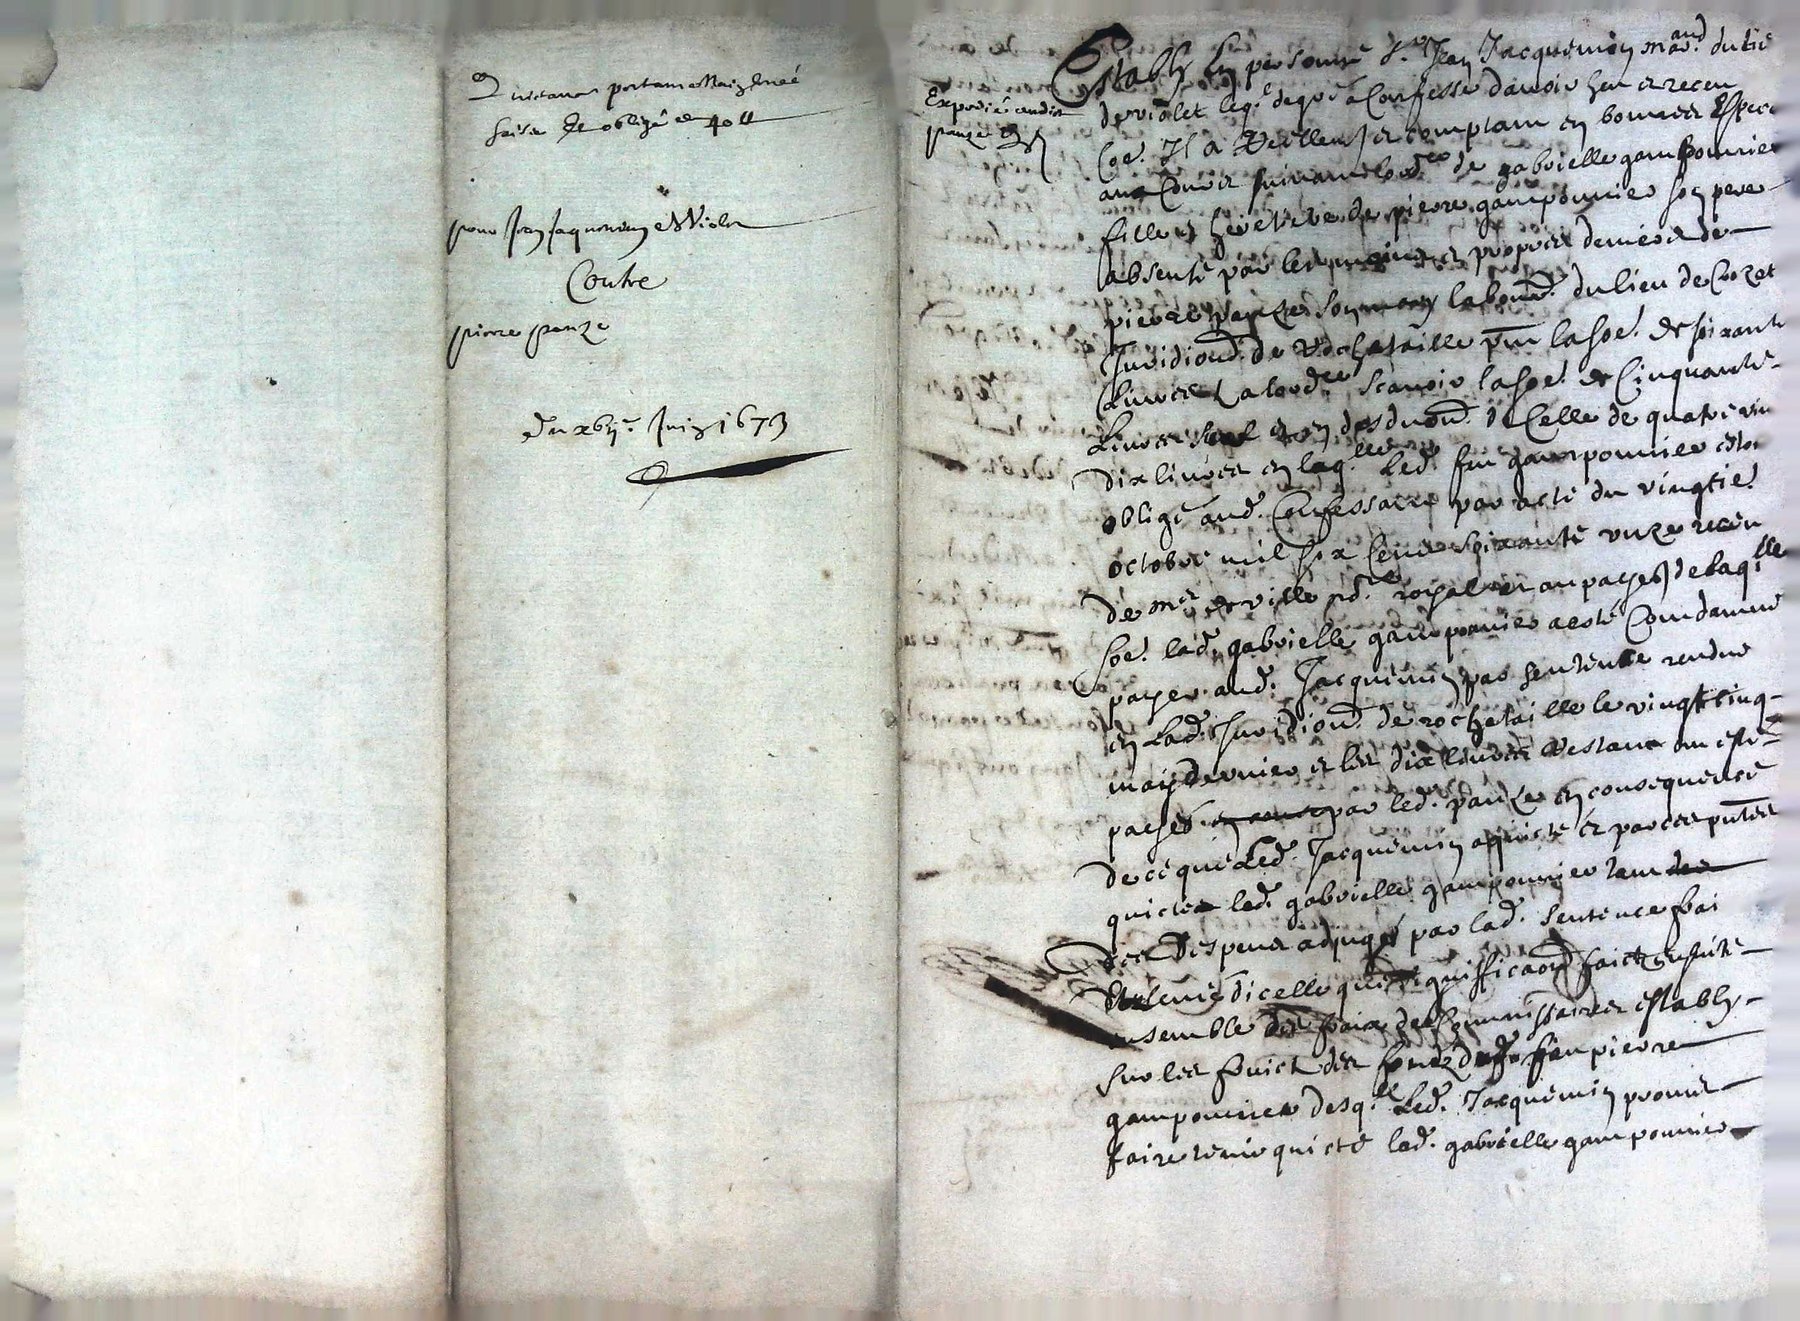 Quictance portant
saisie & oblige de 40 ll
pour Jean Jaquemin de Violet
Contre
pierre panze
Du xbij.e Juin 1673
Expedié audit
panze
Estably En personne S.r Jean Jacquemin march.and du lieu
de violet leq.l de gré a Confessé davoir heu et receu
Coe. Il a reellem.t et comptant en bonnes Espece
aux Cours suivant lord.ce de gabrielle gamponnier
fille et heretiere de pierre gamponnier son pere
absente par les mains et propres deniers de
pierre panze son labour.d du lieu de Crozet
Juridiond. de Rochetaille p.nt la soe. de soixante
Livres a lord.ce scavoir la soe. de Cinquante
Livres et en desduon.d dicelle de quatre vin
dix livres en laq.lle led. feu gamponnier estoit
obligé aud. Confessant par acte du vingtie.
octobre mil six Cent soixante unze receu
de m.e deville no.re royal et au payem.t de laq.lle
soe. lad. gabrielle gamponnier a esté Condamné
payer aud. Jacquemin par sentence rendue
en lad. Juridiond. de rochetaille le vingt cinq
may dernier et les dix livres restant ont esté
payés par led. panze en consequence
de ce que led. Jacquemin a quicté et par ces p.ntes
quicte led. gabrielle gamponnier tant
des despens adjugés par lad. sentence frai
et levée dicelle que significaon.d faict ensuite
ensemble des frais des Commissaires estably
sur les fruict des fondz dud. feu pierre
gamponnier desq.ls led. Jacquemin promet
faire tenir quicte lad. gabrielle gamponnier